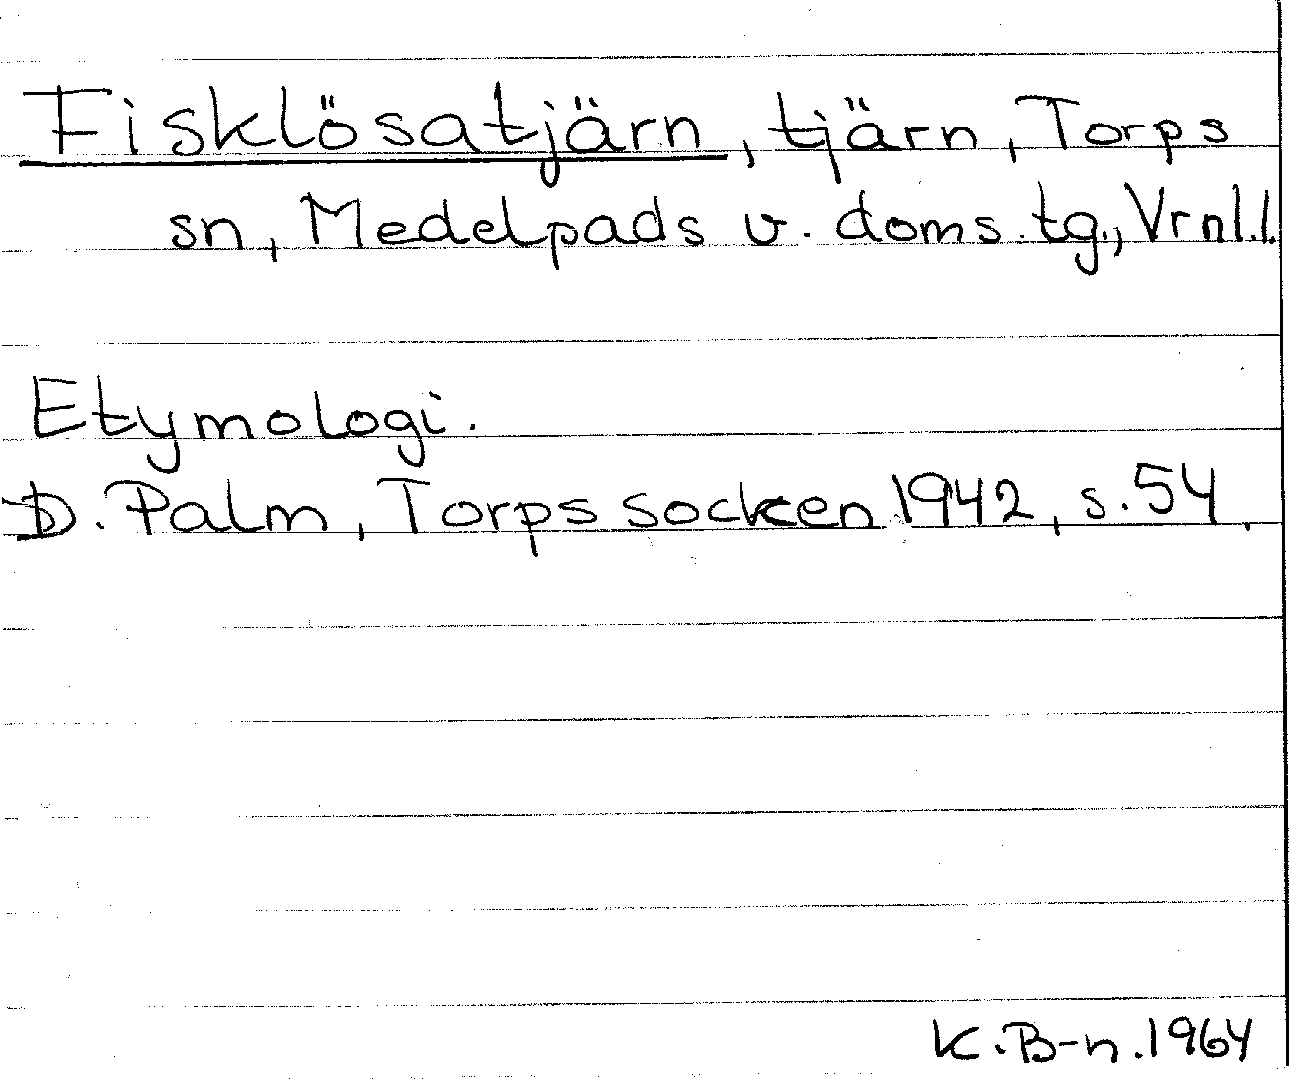 Fisklösatjärn, tjärn, Torps
sn, Medelpads v. doms. tg., Vrnl. l.
Etymologi.
D. Palm, Torps socken 1942, s. 54.
K. B-n. 1964